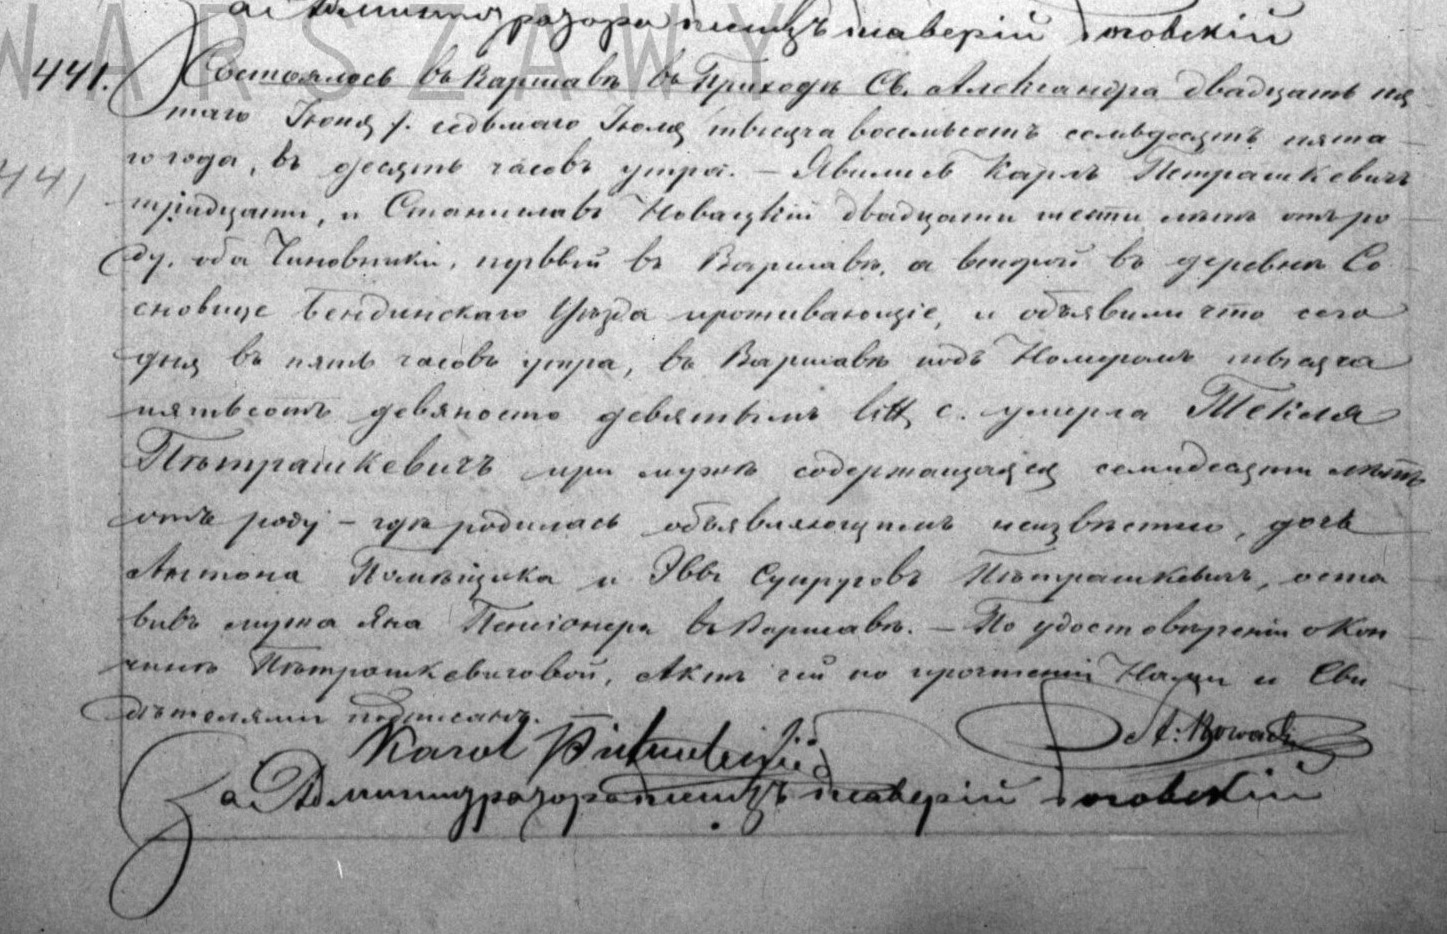 За Администратора Ксаверій Роговскій
WARSZAWY
441. Состоялось въ Варшавѣ въ Приходѣ Св. Александра двадцать пя
таго Іюня /. седьмаго Іюля тысяча восемьсотъ семьдесятъ пята
го года, въ десять часовъ утра. – Явились Карлъ Петрашкевичъ
441
тридцати, и Станиславъ Новацкій двадцати шести лѣтъ отъ ро
ду, оба Чиновники, первый въ Варшавѣ, а второй въ деревнѣ Со
сновице Бендинскаго Уѣзда проживающіе, и объявили что сего
дня въ пять часовъ утра, въ Варшавѣ подъ Номеромъ тысяча
пятьсотъ девяносто девятымъ litt c. умерла Текля
Пѣтрашкевичъ при мужѣ содержащаяся семидесяти лѣтъ
отъ роду – гдѣ родилась объявляющимъ неизвѣстно, дочь
Антона Помѣщика и Эвы Супруговъ Пѣтрашкевичъ, оста
вивъ мужа Яна Пенсіонера въ Варшавѣ. – По удостовѣреніи о кон
чинѣ Пѣтрашкевичовой, Актъ сей по прочтеніи Нами и Сви
дѣтелями подписанъ. –
Karol St: Nowacki
За Администратора Ксаверій Роговскій